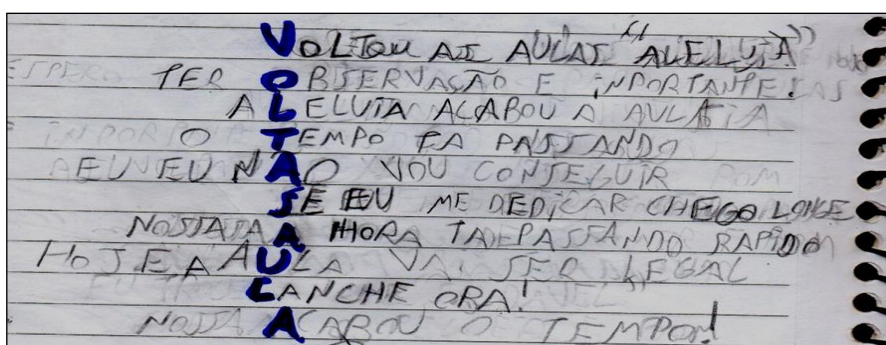 VOLTOU AS AULAS "ALELUIA"
TER OBSERVAÇÃO E IMPORTANTE!
ALELUIA ACABOU A AULA
O TEMPO TA PASSANDO
EU NÃO VOU CONSEGUIR
SE EU ME DEDICAR CHEGO LONGE
NOSSA A HORA TA PASSANDO RAPIDO
HOJE A AULA VAI SER LEGAL
LANCHE ORA!
NOSSA ACABOU O TEMPO!